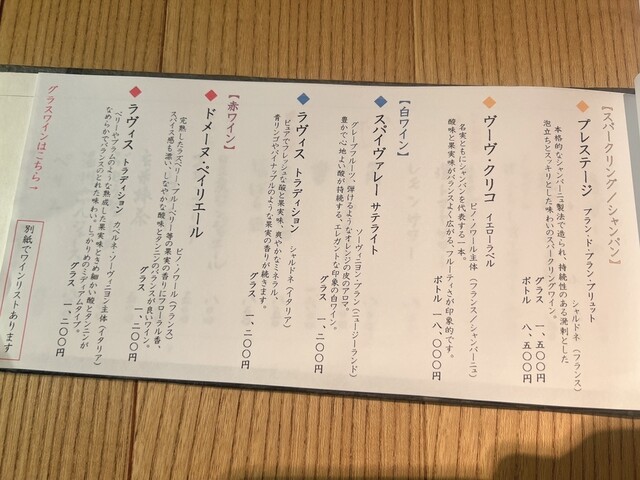 【スパークリング／シャンパン】
◆プレステージ ブラン・ド・ブラン・ブリュット
シャルドネ（フランス）
本格的なシャンパーニュ製法で造られ、持続性のある溌剌とした
泡立ちとスッキリとした味わいのスパークリングワイン。
グラス 一、五〇〇円
ボトル 八、五〇〇円
◆ヴーヴ・クリコ イエローラベル
ピノ・ノワール主体（フランス／シャンパーニュ）
名実ともにシャンパンを代表する一本。
酸味と果実味がバランスよく広がる、フルーティさが印象的です。
ボトル 一八、〇〇〇円
【白ワイン】
◆スパイヴァレー サテライト
ソーヴィニヨン・ブラン（ニュージーランド）
グレープフルーツ、弾けるようなオレンジの皮のアロマ。
豊かで心地よい酸が持続する、エレガントな印象の白ワイン。
グラス 一、二〇〇円
◆ラヴィス トラディション
シャルドネ（イタリア）
ピュアでフレッシュな酸と果実味、爽やかなミネラル、
青リンゴやパイナップルのような果実の香りが続きます。
グラス 一、二〇〇円
【赤ワイン】
◆ドメーヌ・ペイリエール
ピノ・ノワール（フランス）
完熟したラズベリー、ブルーベリー等の果実の香りにフローラル香、
スパイス感も漂い、しなやかな酸味とタンニンのバランスが良いワイン。
グラス 一、二〇〇円
◆ラヴィス トラディション
カベルネ・ソーヴィニヨン主体（イタリア）
ベリーやプラムのような熟成した果実味ときめ細かい酸とタンニンが
なめらかでバランスのとれた味わい。しっかりめのミディアムタイプ。
グラス 一、二〇〇円
グラスワインはこちら→
別紙でワインリストあります